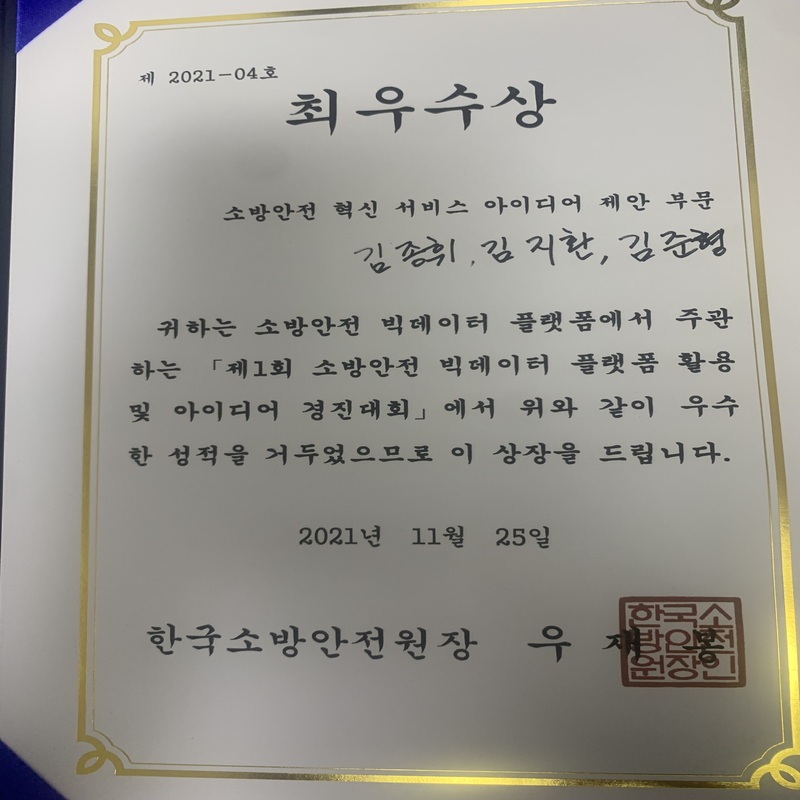 제 2021-04호
최우수상
소방안전 혁신 서비스 아이디어 제안 부문
김종휘, 김지환, 김준형
귀하는 소방안전 빅데이터 플랫폼에서 주관
하는 「제1회 소방안전 빅데이터 플랫폼 활용
및 아이디어 경진대회」에서 위와 같이 우수
한 성적을 거두었으므로 이 상장을 드립니다.
2021년 11월 25일
한국소방안전원장 우 재 봉
한국소
방안전
원장인